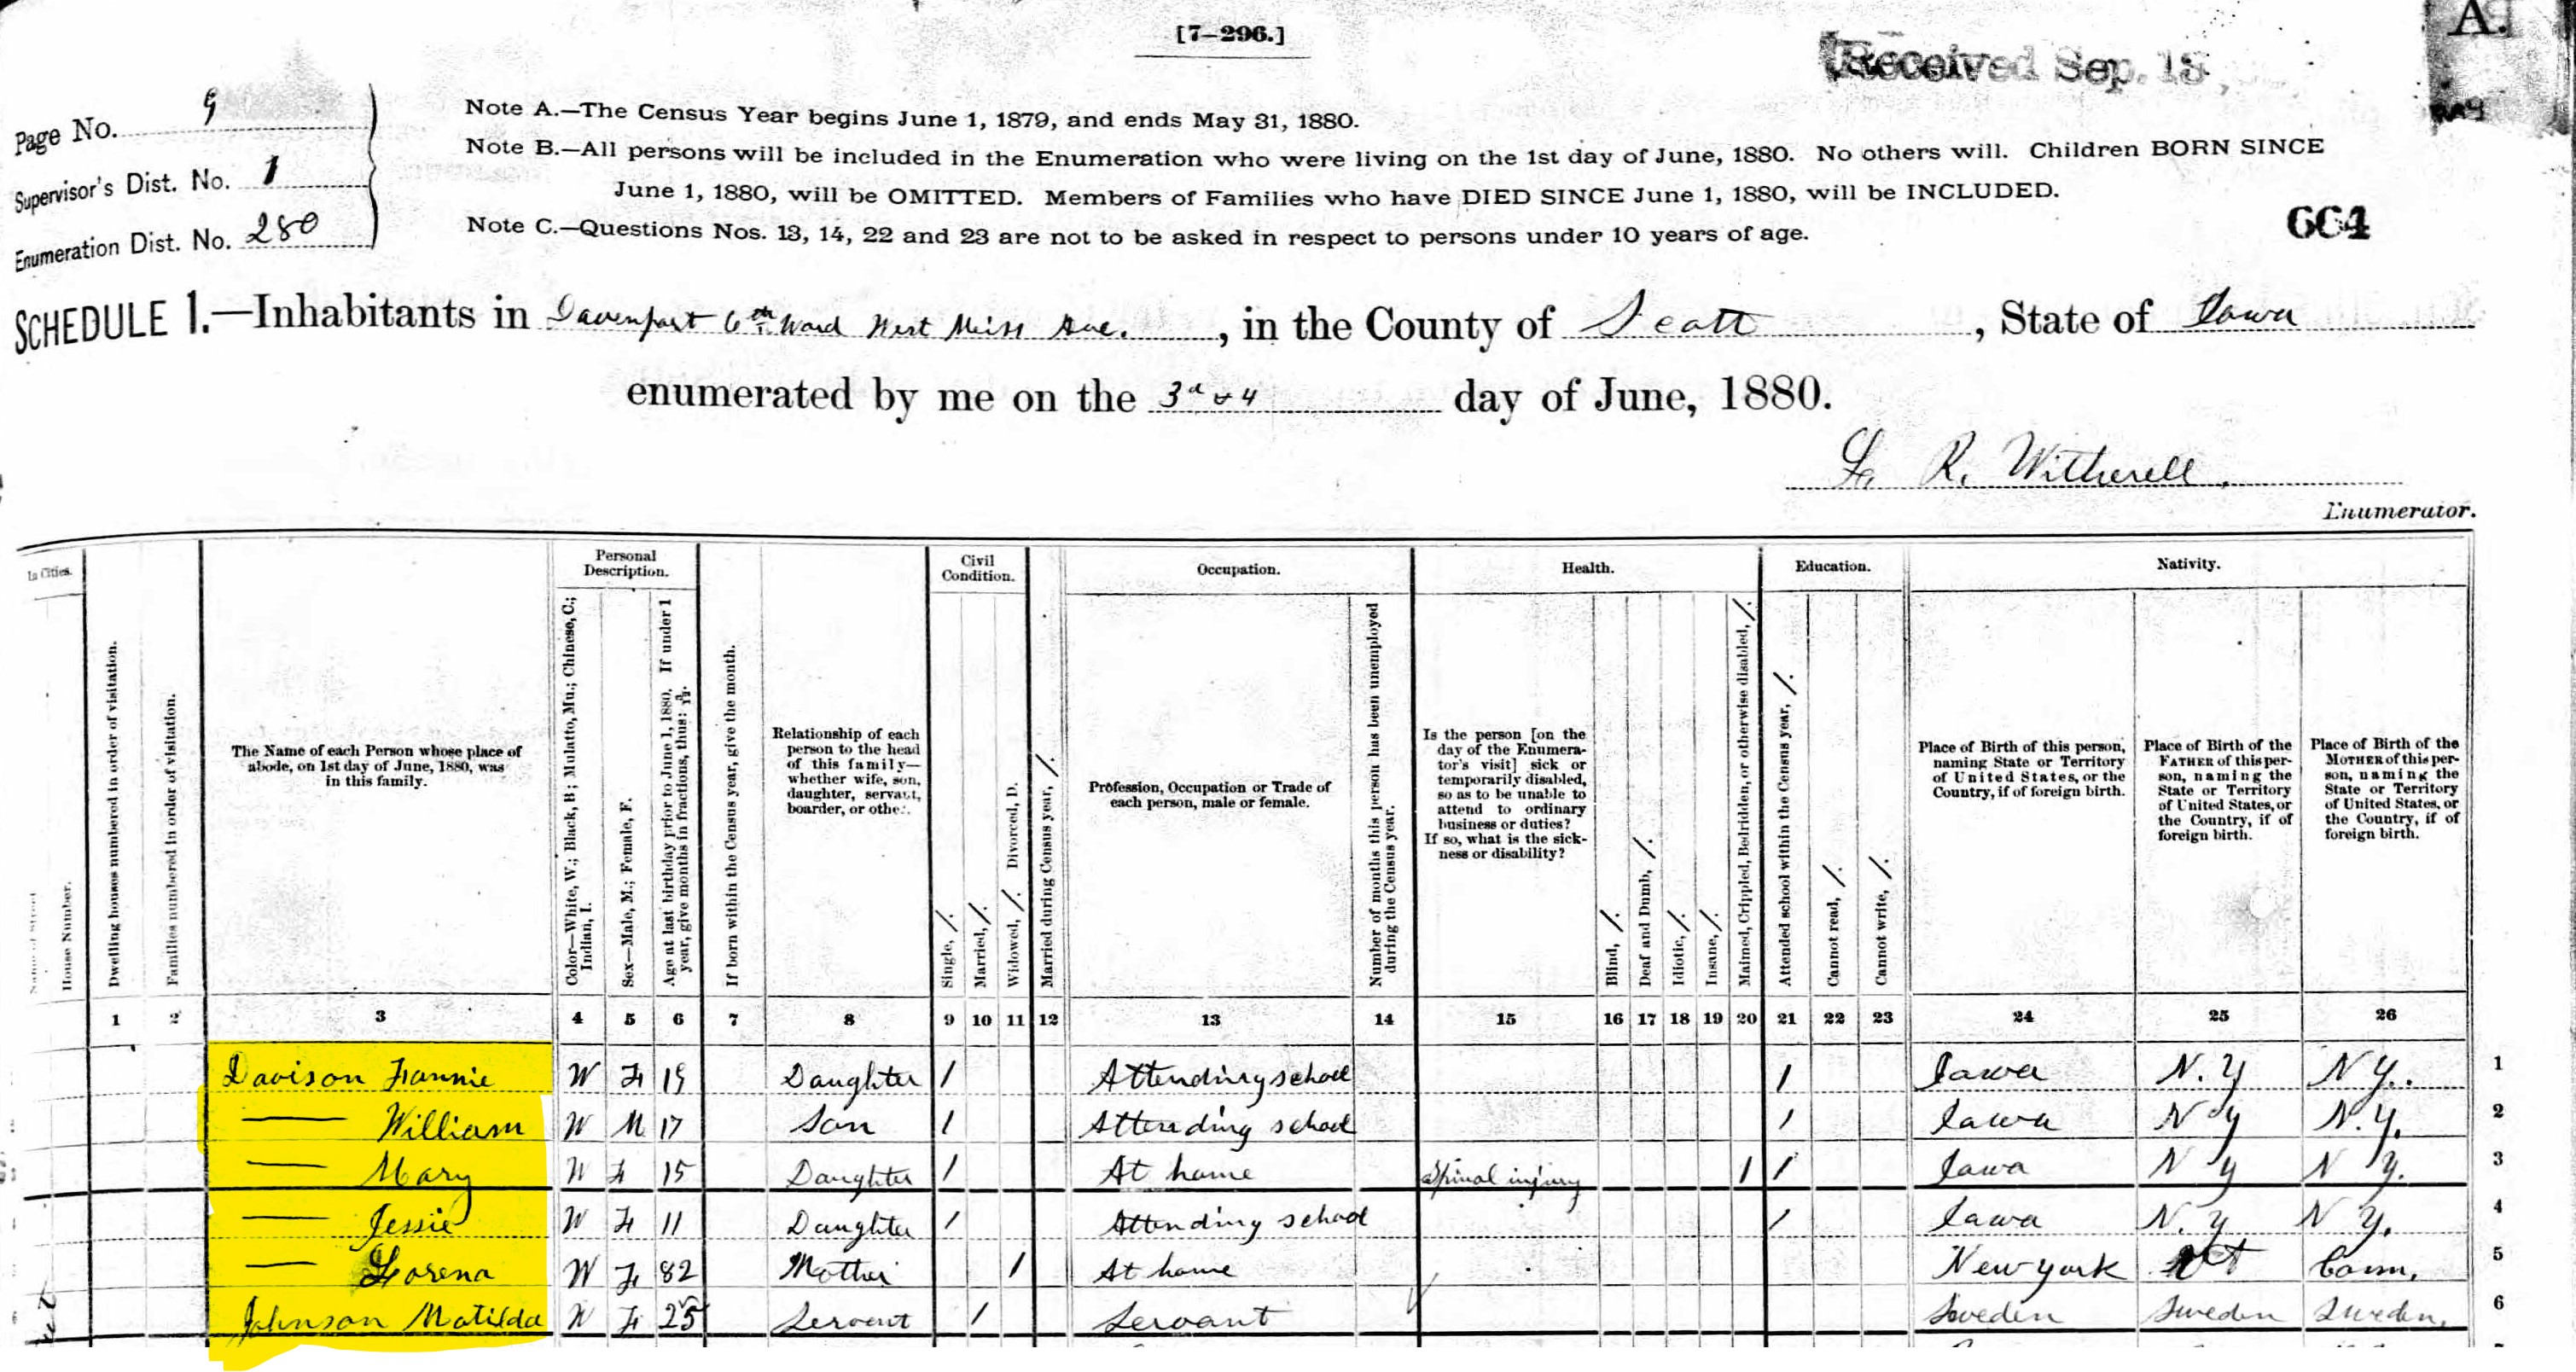 [7-296.]
Received Sep. 18
A.
Page No. 9
Supervisor's Dist. No. 1
Enumeration Dist. No. 280
Note A.—The Census Year begins June 1, 1879, and ends May 31, 1880.
Note B.—All persons will be included in the Enumeration who were living on the 1st day of June, 1880. No others will. Children BORN SINCE
June 1, 1880, will be OMITTED. Members of Families who have DIED SINCE June 1, 1880, will be INCLUDED.
Note C.—Questions Nos. 13, 14, 22 and 23 are not to be asked in respect to persons under 10 years of age.
664
SCHEDULE 1.—Inhabitants in Davenport 6th Ward West Miss Ave., in the County of Scott, State of Iowa
enumerated by me on the 3d & 4 day of June, 1880.
L. R. Witherell.
Enumerator.
In Cities.
Personal Description.
Civil Condition.
Occupation.
Health.
Education.
Nativity.
Name of Street
House Number.
Dwelling houses numbered in order of visitation.
Families numbered in order of visitation.
The Name of each Person whose place of
abode, on 1st day of June, 1880, was
in this family.
Color—White, W.; Black, B; Mulatto, Mu.; Chinese, C.;
Indian, I.
Sex—Male, M.; Female, F.
Age at last birthday prior to June 1, 1880. If under 1
year, give months in fractions, thus: 3/12.
If born within the Census year, give the month.
Relationship of each
person to the head
of this family—
whether wife, son,
daughter, servant,
boarder, or other.
Single, /.
Married, /.
Widowed, /. Divorced, D.
Married during Census year, /.
Profession, Occupation or Trade of
each person, male or female.
Number of months this person has been unemployed
during the Census year.
Is the person [on the
day of the Enumera-
tor's visit] sick or
temporarily disabled,
so as to be unable to
attend to ordinary
business or duties?
If so, what is the sick-
ness or disability?
Blind, /.
Deaf and Dumb, /.
Idiotic, /.
Insane, /.
Maimed, Crippled, Bedridden, or otherwise disabled, /.
Attended school within the Census year, /.
Cannot read, /.
Cannot write, /.
Place of Birth of this person,
naming State or Territory
of United States, or the
Country, if of foreign birth.
Place of Birth of the
FATHER of this per-
son, naming the
State or Territory
of United States, or
the Country, if of
foreign birth.
Place of Birth of the
MOTHER of this per-
son, naming the
State or Territory
of United States, or
the Country, if of
foreign birth.
1 2 3 4 5 6 7 8 9 10 11 12 13 14 15 16 17 18 19 20 21 22 23 24 25 26
Davison Fannie W F 19 Daughter / Attending school / Iowa N.Y N.Y. 1
— William W M 17 Son / Attending school / Iowa N Y N.Y. 2
— Mary W F 15 Daughter / At home Spinal injury / / Iowa N Y N Y. 3
— Jessie W F 11 Daughter / Attending school / Iowa N.Y N Y. 4
— Lorena W F 82 Mother / At home New york Conn. 5
Johnson Matilda W F 25 Servant / Servant Sweden Sweden Sweden. 6